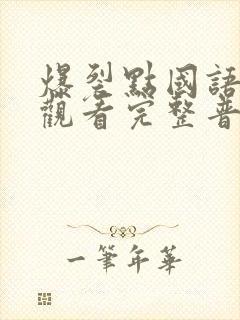 爆裂點國語
觀看完整普
一筆年華